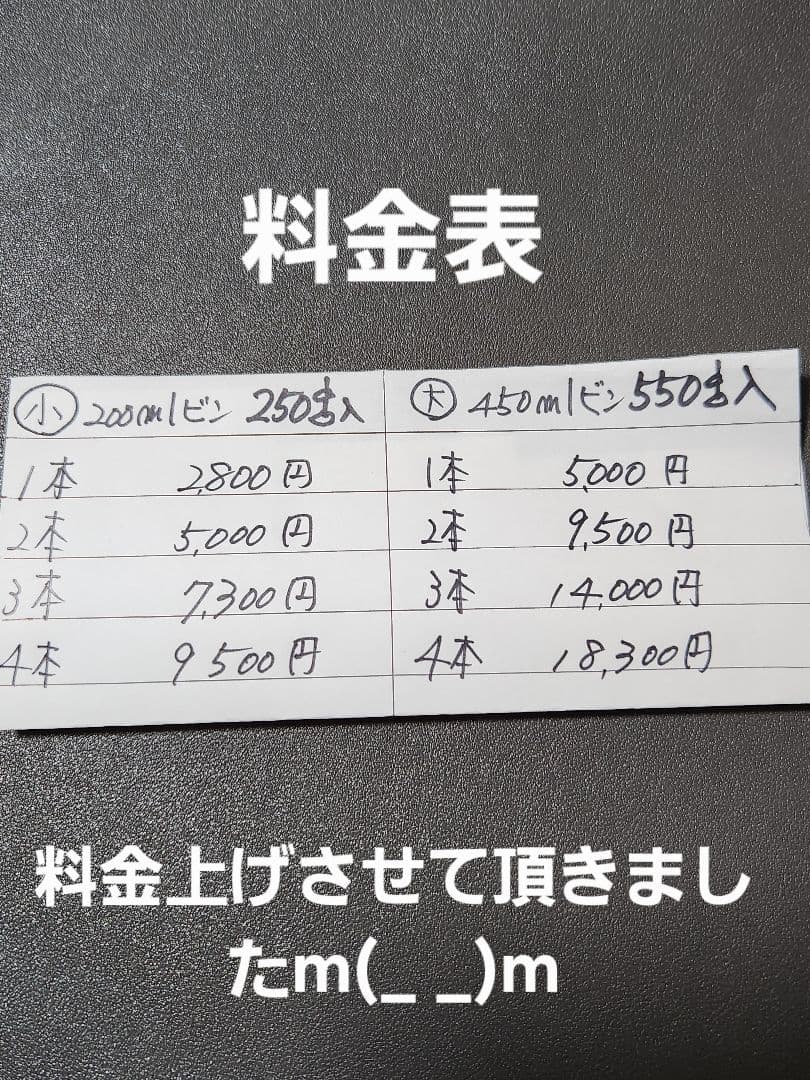 料金表
㋛ 200mlビン 250g入
1本 2,800円
2本 5,000円
3本 7,300円
4本 9500円
大 450mlビン 550g入
1本 5,000円
2本 9,500円
3本 14,000円
4本 18,300円
料金上げさせて頂きまし
たm(_ _)m